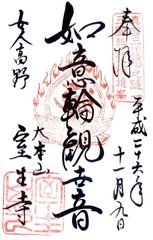 奉拝
平成二十六年
十一月九日
如意輪観音
女人高野
大本山
室生寺